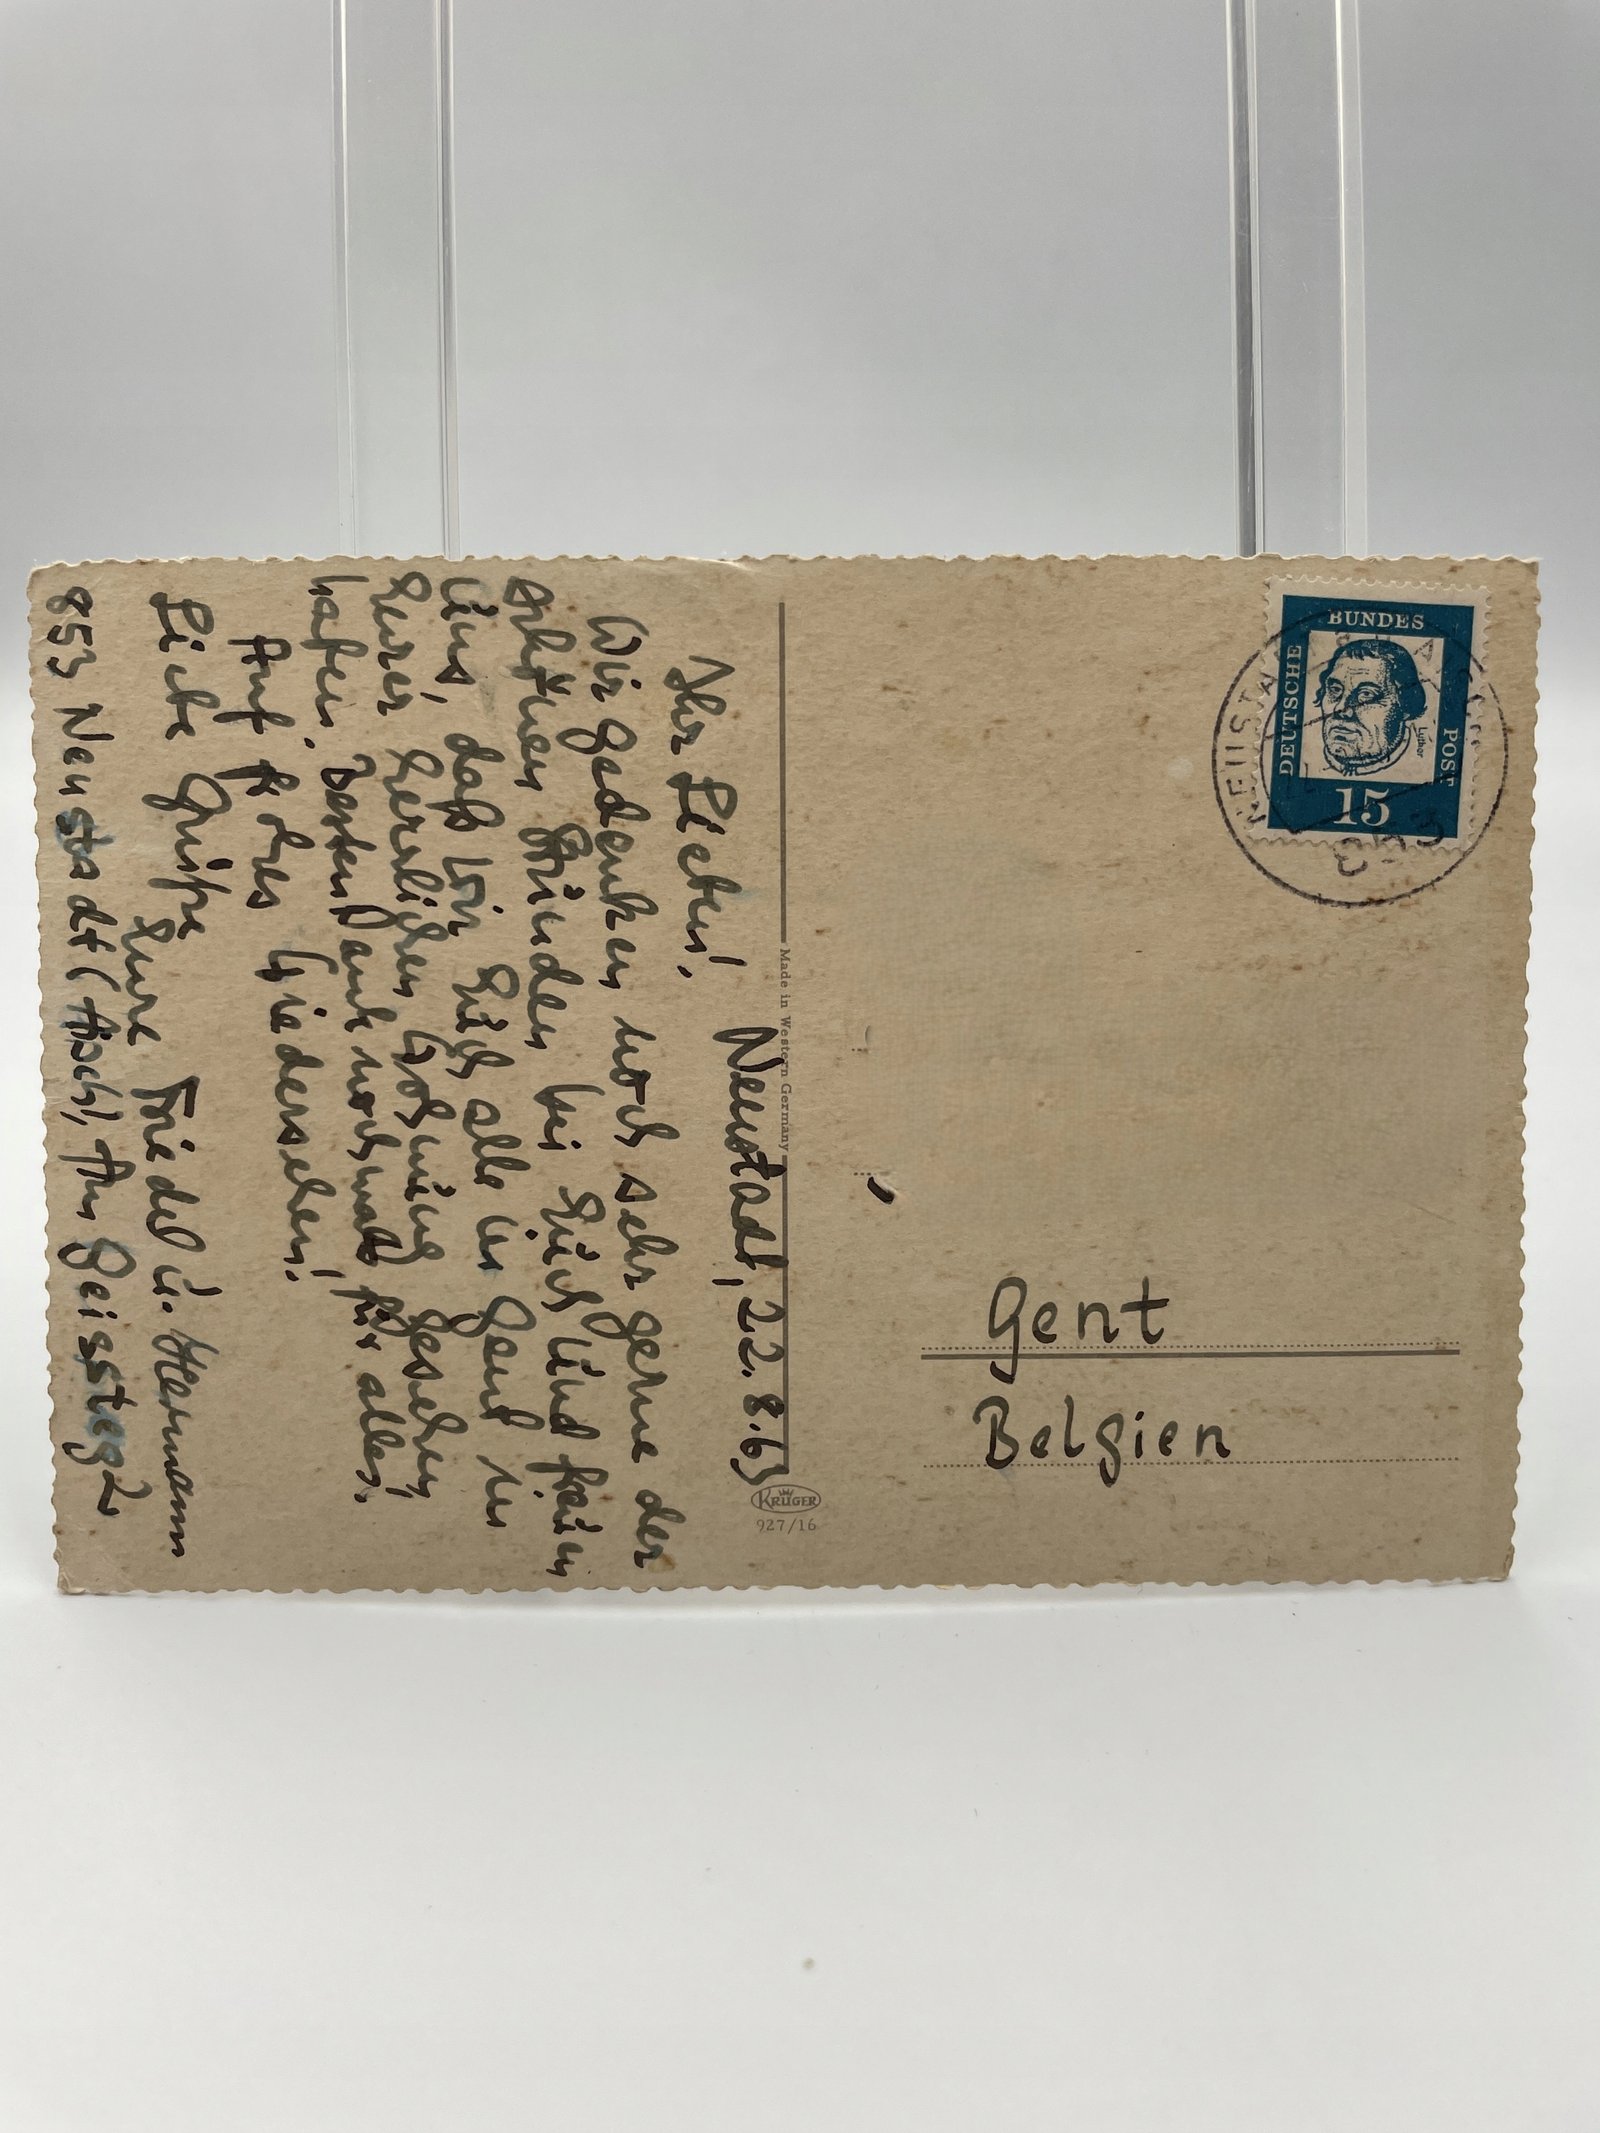 Neustadt, 22.8.63
Ihr Lieben!
Wir gedenken noch sehr gerne der
schönen Stunden bei Euch und freuen
uns, daß wir Euch alle in Gent in
Eurer herrlichen Wohnung gesehen
haben. Besten Dank nochmals für alles.
Auf frohes Wiedersehen!
Liebe Grüße
Eure Friedel u. Hermann
853 Neustadt (Aisch), Am Geissteg 2
Made in Western Germany
KRÜGER
927/16
DEUTSCHE
BUNDES
POST
Luther
15
Gent
Belgien